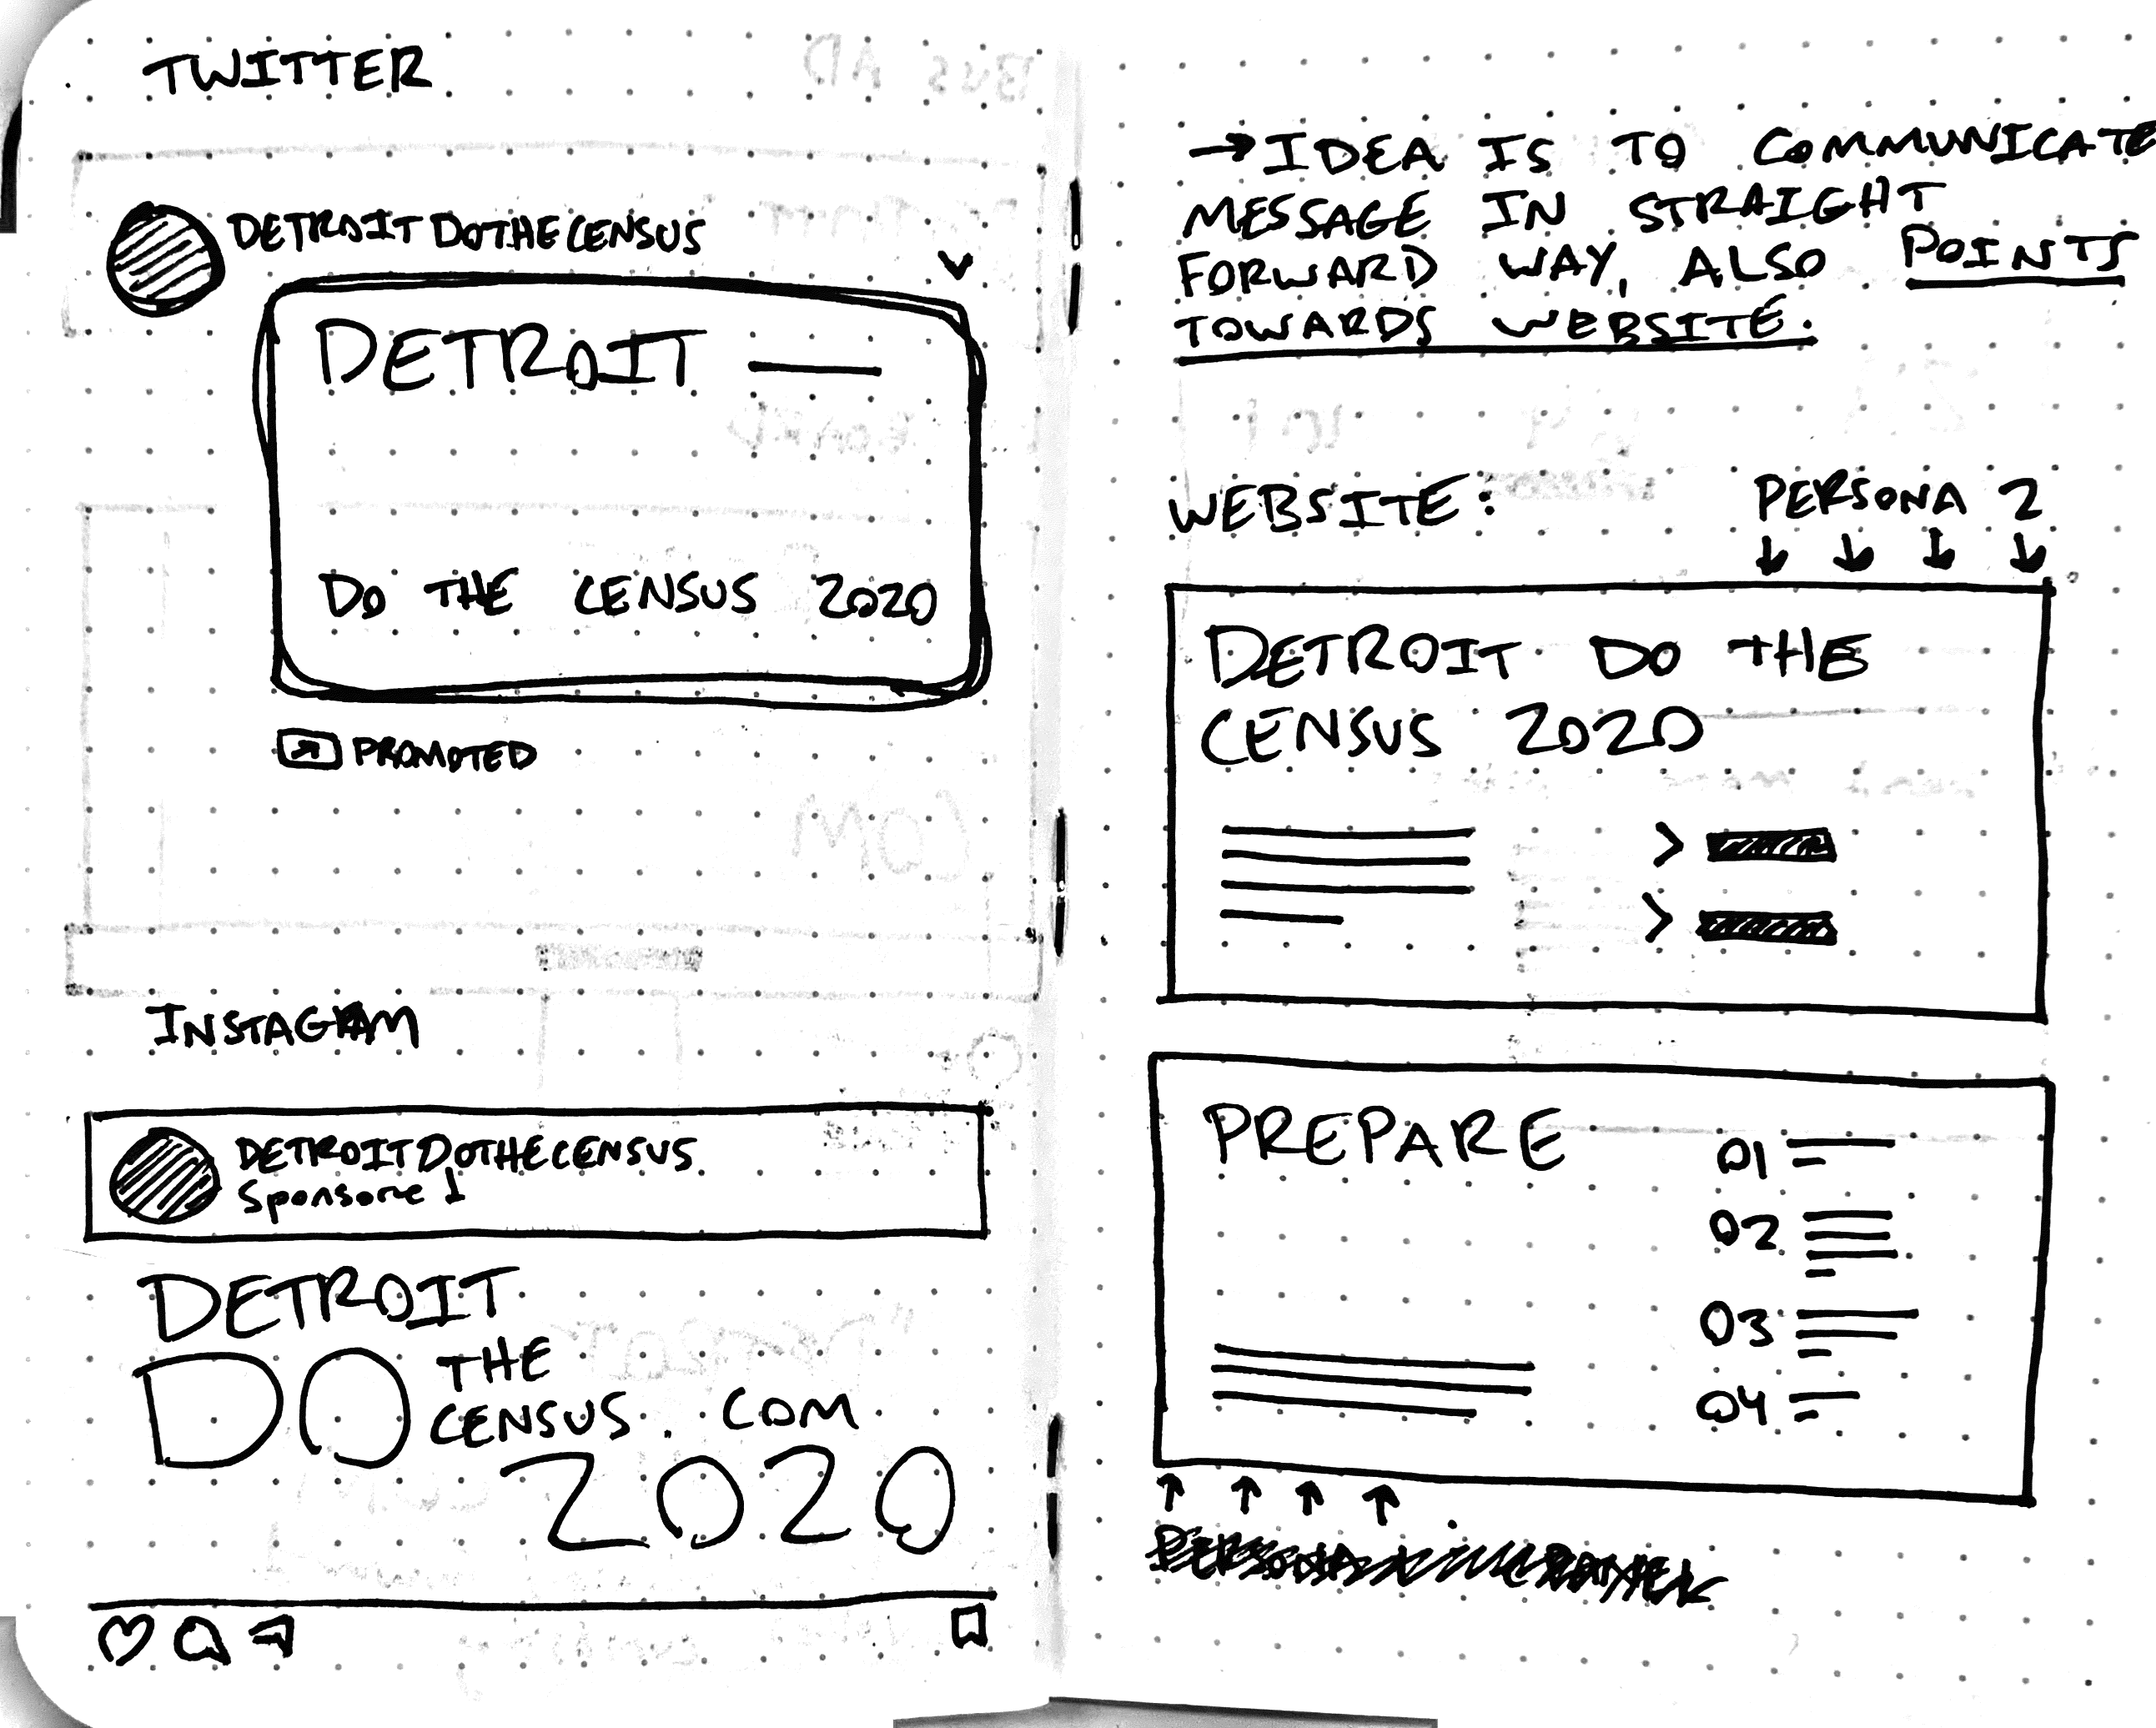 TWITTER
DETROITDOTHECENSUS
DETROIT
DO THE CENSUS 2020
PROMOTED
INSTAGRAM
DETROITDOTHECENSUS
Sponsore
DETROIT
DO THE
CENSUS. COM
2020
→ IDEA IS TO COMMUNICATE
MESSAGE IN STRAIGHT
FORWARD WAY, ALSO POINTS
TOWARDS WEBSITE.
WEBSITE:
PERSONA 2
DETROIT DO THE
CENSUS 2020
PREPARE
01
02
03
04